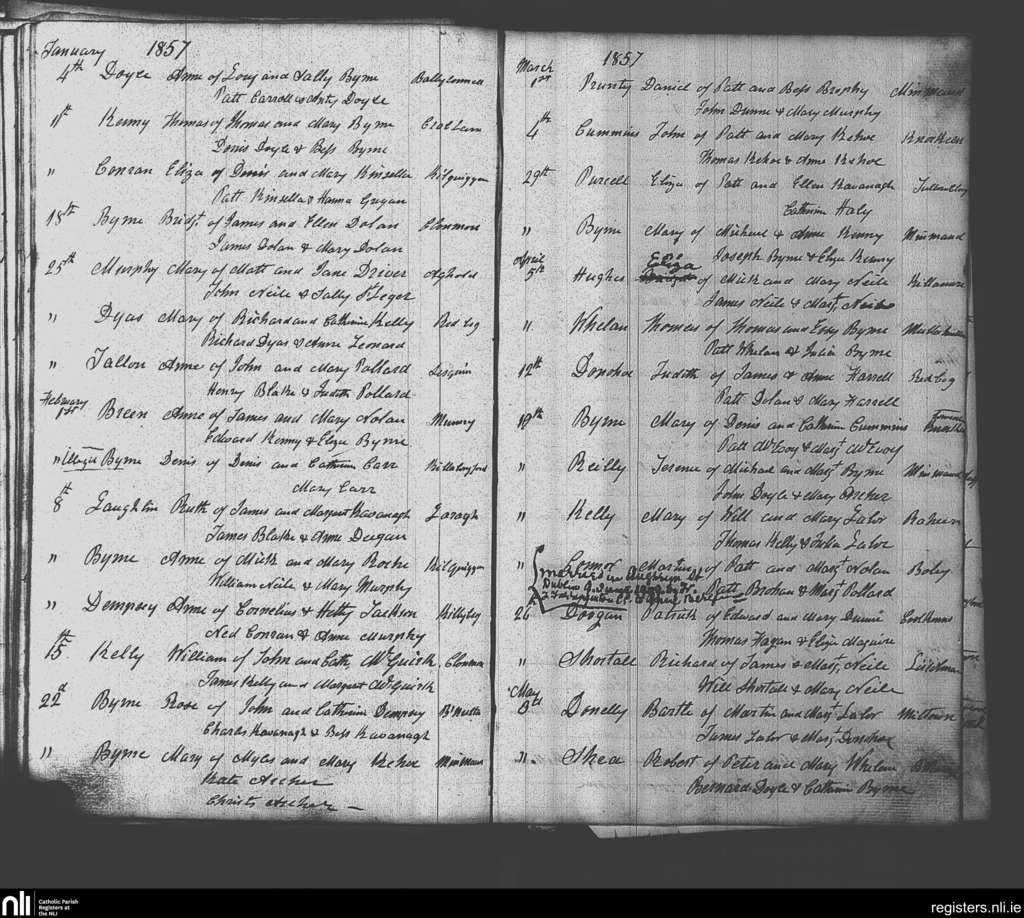 January 1857
4th Doyle Anne of Loug and Sally Byrne Ballyconnell
Patt Carroll & Anty Doyle
11th Kenny Thomas of Thomas and Mary Byrne
Denis Doyle & Bess Byrne
" Conran Eliza of Denis and Mary Kinsella Kilquiggan
Patt Kinsella & Hanna Gregan
18th Byrne Bridjt. of James and Ellen Dolan Clonmore
James Dolan & Mary Dolan
25th Murphy Mary of Matt and Jane Driver Aghold
John Neile & Sally St Leger
" Dyas Mary of Richard and Catherine Kelly Red Log
Richard Dyas & Anne Leonard
" Tallon Anne of John and Mary Pollard
Henry Blake & Judith Pollard
February
1st Breen Anne of James and Mary Nolan Munny
Edward Kenny & Eliza Byrne
" Illegit Byrne Denis of Denis and Catherine Carr
Mary Carr
8th Laughlin Ruth of James and Margaret Kavanagh
James Blake & Anne Deegan
" Byrne Anne of Mick and Mary Roche Kilquiggan
William Neile & Mary Murphy
" Dempsey Anne of Cornelius & Hetty Jackson Killybeg
Ned Conran & Anne Murphy
15th Kelly William of John and Cath. McGuirk Clonmore
James Kelly and Margaret McGuirk
22d Byrne Rose of John and Catherine Dempsey
Charles Kavanagh & Bess Kavanagh
" Byrne Mary of Myles and Mary Kehoe Minmaun
Kate Archer
Christy Archer
1857
March
1st Prunty Daniel of Patt and Bess Brophy Minmaund
John Dunne & Mary Murphy
4th Cummins John of Patt and Mary Kehoe Knocklean
Thomas Kehoe & Anne Kehoe
29th Purcell Eliza of Patt and Ellen Kavanagh Tullowclay
Catherine Haly
" Byrne Mary of Michael & Anne Kenny Minmaund
Joseph Byrne & Eliza Kenny
April Eliza
5th Hughes of Mick and Mary Neile
James Neile & Margt. Neile
" Whelan Thomas of Thomas and Essy Byrne
Patt Whelan & Julia Byrne
12th Donohoe Judith of James & Anne Farrell Red Log
Patt Dolan & Mary Farrell
19th Byrne Mary of Denis and Catherine Cummins
Patt McEvoy & Margt McEvoy
" Reilly Terence of Michael and Margt Byrne Minmaund
John Doyle & Mary Archer
" Kelly Mary of Will and Mary Lalor Raheen
Thomas Kelly & Julia Lalor
" Connor of Patt and Margt Nolan Boley
married in Aughrim St
Dublin
Patt Brohan & Margt Pollard
26 Doogan Patrick of Edward and Mary Dunne
Thomas Fagan & Eliza Maguire
" Shortall Richard of James & Margt Neile
Will Shortall & Mary Neile
May
3d Donelly Bartle of Martin and Margt Lalor Miltown
James Lalor & Margt Donohoe
" Shea Robert of Peter and Mary Whelan
Bernard Doyle & Catherine Byrne
nli Catholic Parish
Registers at
the NLI
registers.nli.ie